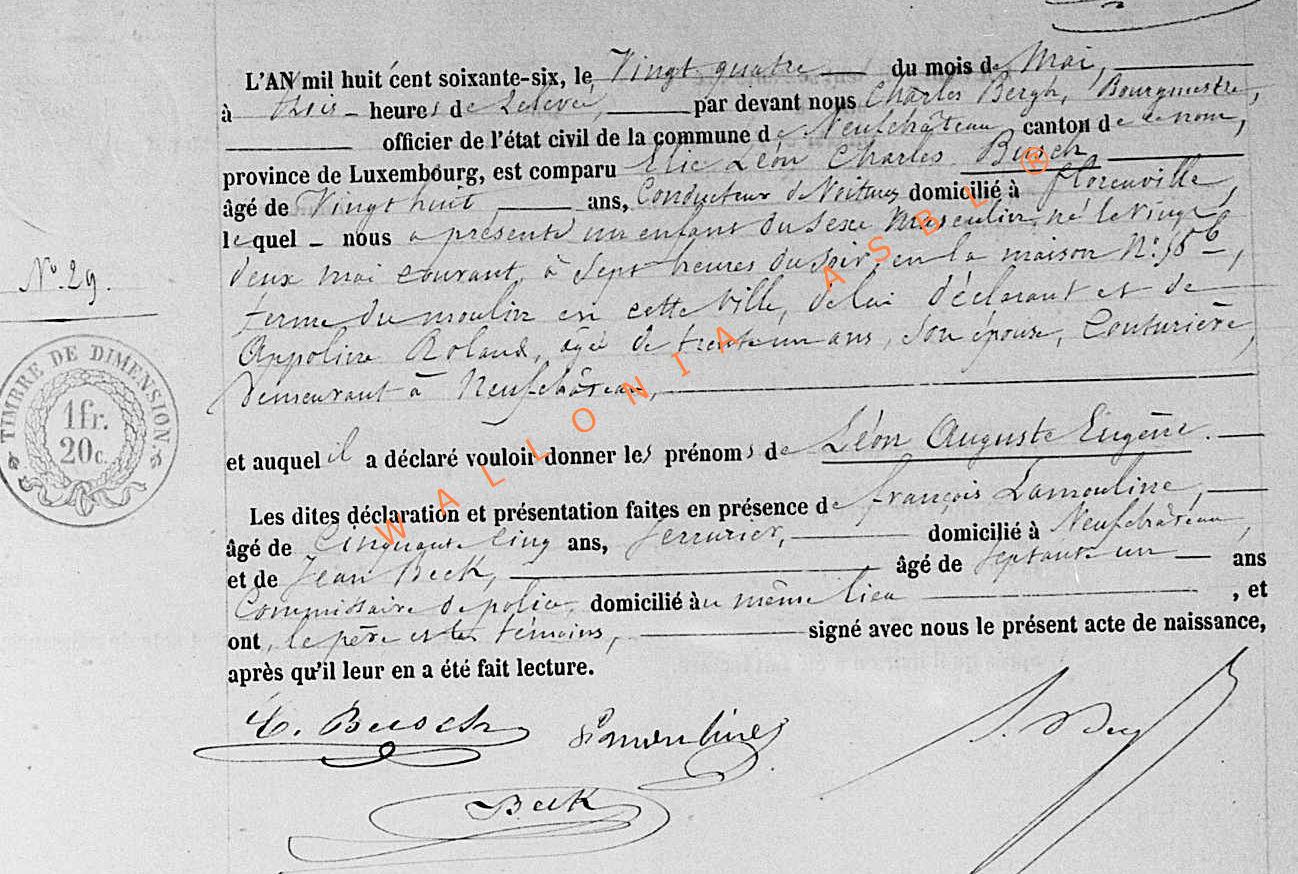 L'AN mil huit cent soixante-six, le Vingt quatre du mois de Mai,
à trois heures de relevé, par devant nous Charles Bergh, Bourgmestre,
officier de l'état civil de la commune de Neufchâteau canton de ce nom,
province de Luxembourg, est comparu Elie Léon Charles Busch
âgé de Vingt huit ans, Conducteur de Voitures domicilié à Florenville,
lequel nous a présenté un enfant du sexe Masculin, né le vingt
deux mai courant, à Sept heures du soir, en la maison N°
ferme du moulin en cette ville, de lui déclarant et de
Appoline Roland, agée de trente un ans, son épouse, Couturière,
demeurant à Neufchâteau,
et auquel il a déclaré vouloir donner les prénoms de Léon Auguste Eugène.
Les dites déclaration et présentation faites en présence de françois Lamouline,
N° 29.
âgé de Cinquante Cinq ans, Serrurier, domicilié à Neufchâteau,
et de Jean Beck, âgé de septante un ans
Commissaire de police, domicilié au même lieu, et
ont, le père et les témoins, signé avec nous le présent acte de naissance,
après qu'il leur en a été fait lecture.
TIMBRE DE DIMENSION
1 fr.
20 c.
WALLONIA ASBL ®
C. Busch
Beck